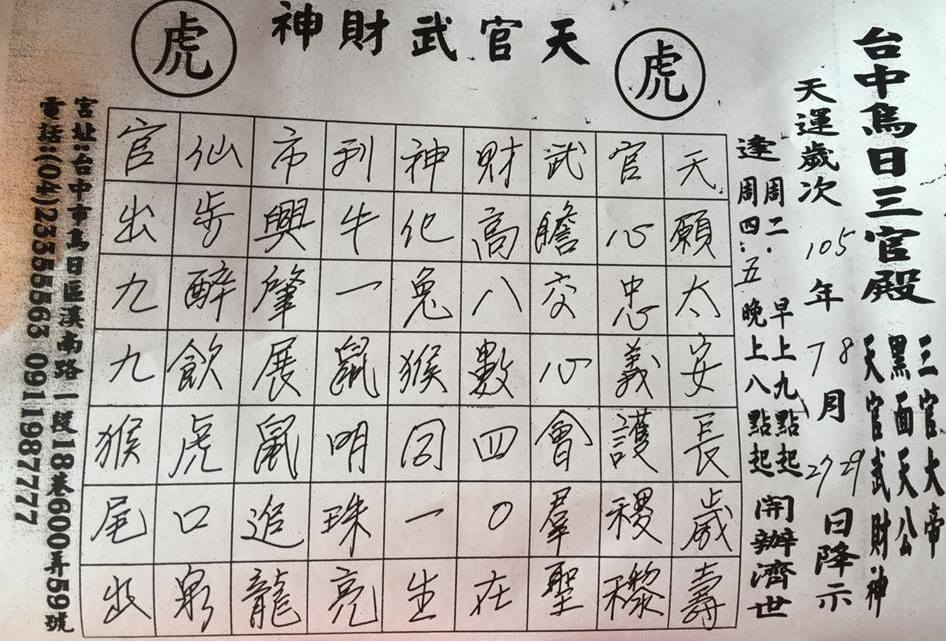 台中烏日三官殿
三官大帝
黑面天公
天官武財神
天運歲次 105年 7 8月 27 29日降示
逢周二.早上九點起
周四.五晚上八點起
開辦濟世
天官武財神
虎
虎
天願太安長歲壽
官心忠義護稷
武膽交心會羣聖
財高八數四0在
神化兔猴同一生
利牛一鼠明珠亮
市興肇展鼠追龍
仙步醉飲虎口
官出九九猴尾出
宮址:台中市烏日區溪南路一段18巷600弄59號
電話:(04)23355563 0911987777